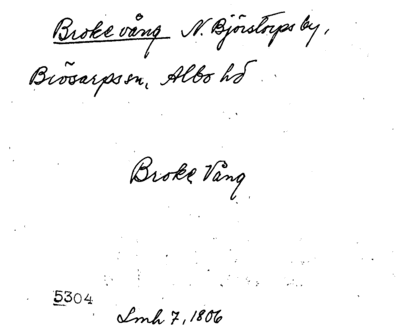 Broke vång N. Björstorps by,
Brösarps sn, Albo hd
Broke Vång
5304
Lmh 7, 1806